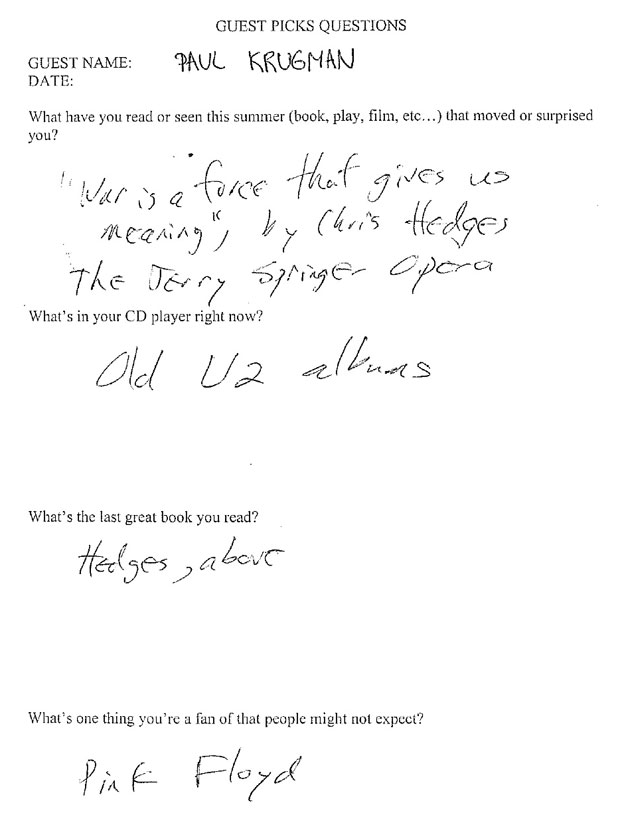 GUEST PICKS QUESTIONS
GUEST NAME: PAUL KRUGMAN
DATE:
What have you read or seen this summer (book, play, film, etc…) that moved or surprised
you?
"War is a force that gives us
meaning", by Chris Hedges
The Jerry Springer Opera
What's in your CD player right now?
Old U2 albums
What's the last great book you read?
Hedges, above
What's one thing you're a fan of that people might not expect?
Pink Floyd